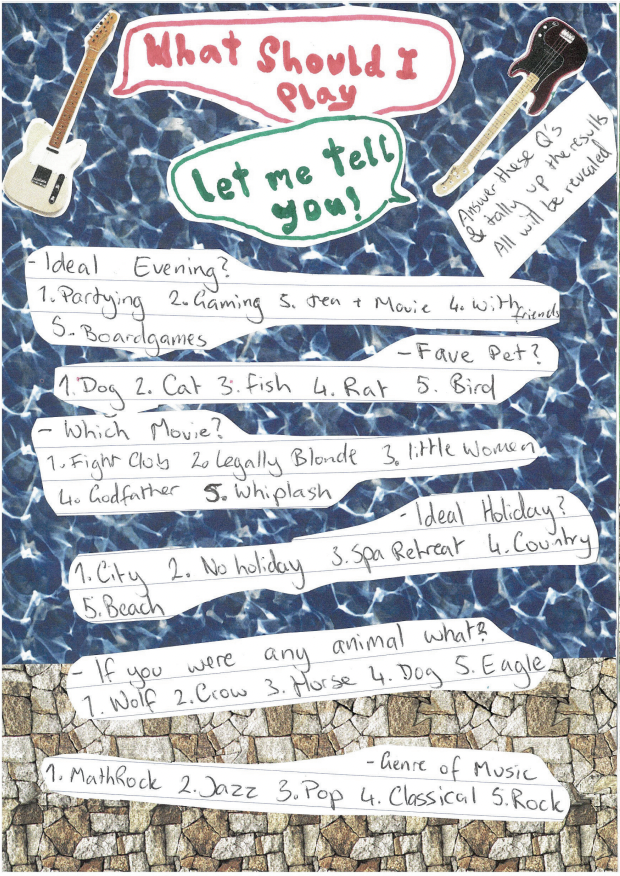 What Should I
Play
Let me tell
you!
Answer these Q's
& tally up the results
All will be revealed
- Ideal Evening?
1. Partying 2. Gaming 5. Tea + Movie 4. With friends
5. Boardgames
- Fave Pet?
1. Dog 2. Cat 3. fish 4. Rat 5. Bird
- Which Movie?
1. Fight Club 2. Legally Blonde 3. little Women
4. Godfather 5. Whiplash
- Ideal Holiday?
1. City 2. No holiday 3. Spa Retreat 4. Country
5. Beach
- If you were any animal what?
1. Wolf 2. Crow 3. Horse 4. Dog 5. Eagle
- Genre of Music
1. MathRock 2. Jazz 3. Pop 4. Classical 5. Rock